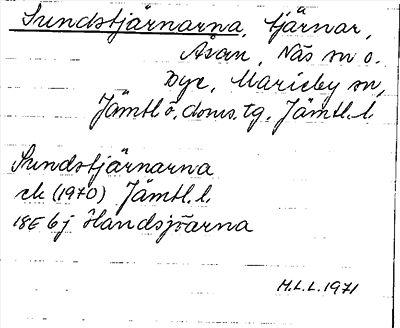 Sundstjärnarna, tjärnar,
Åsan, Näs sn o.
Bye, Marieby sn,
Jämtl ö. doms. tg. Jämtl. l.
Sundstjärnarna
ek (1970) Jämtl. l.
18E 6j Handsjöarna
H.L.L. 1971